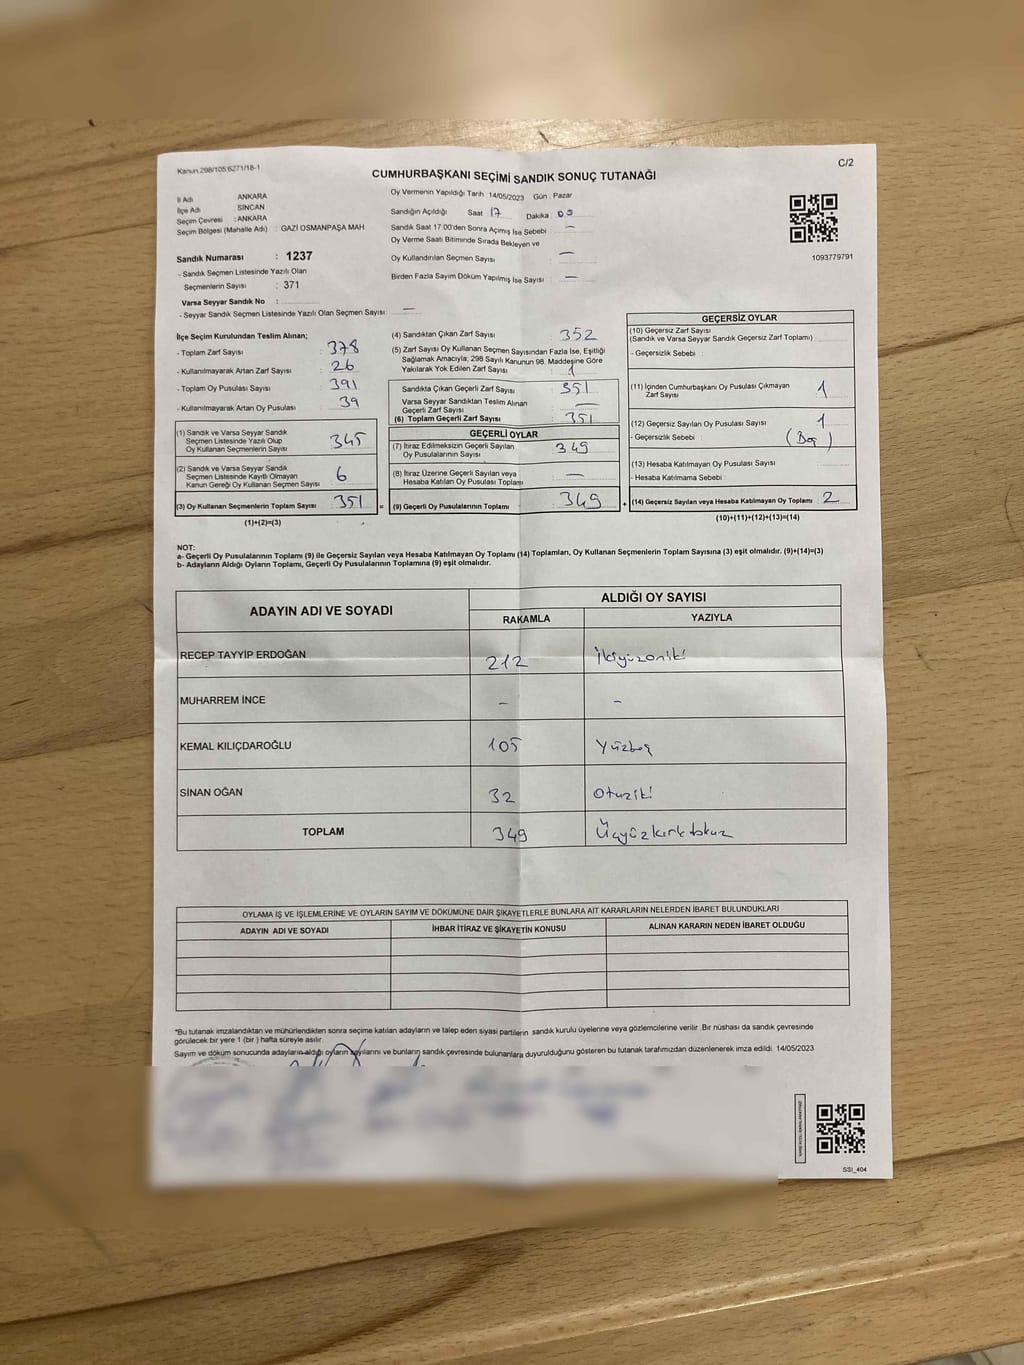 Kanun.298/105,6271/18-1
C/2
CUMHURBAŞKANI SEÇİMİ SANDIK SONUÇ TUTANAĞI
İl Adı ANKARA
İlçe Adı : SİNCAN
Seçim Çevresi : ANKARA
Seçim Bölgesi (Mahalle Adı) : GAZİ OSMANPAŞA MAH
Sandık Numarası : 1237
- Sandık Seçmen Listesinde Yazılı Olan
Seçmenlerin Sayısı : 371
Varsa Seyyar Sandık No :
- Seyyar Sandık Seçmen Listesinde Yazılı Olan Seçmen Sayısı: —
Oy Vermenin Yapıldığı Tarih :14/05/2023 Gün : Pazar
Sandığın Açıldığı Saat : 17 Dakika : 00
Sandık Saat 17:00'den Sonra Açımış İse Sebebi : —
Oy Verme Saati Bitiminde Sırada Bekleyen ve
Oy Kullandırılan Seçmen Sayısı : —
Birden Fazla Sayım Döküm Yapılmış İse Sayısı : —
1093779791
İlçe Seçim Kurulundan Teslim Alınan;
- Toplam Zarf Sayısı : 378
- Kullanılmayarak Artan Zarf Sayısı : 26
- Toplam Oy Pusulası Sayısı : 391
- Kullanılmayarak Artan Oy Pusulası : 39
(1) Sandık ve Varsa Seyyar Sandık
Seçmen Listesinde Yazılı Olup
Oy Kullanan Seçmenlerin Sayısı : 345
(2) Sandık ve Varsa Seyyar Sandık
Seçmen Listesinde Kayıtlı Olmayan
Kanun Gereği Oy Kullanan Seçmen Sayısı : 6
(3) Oy Kullanan Seçmenlerin Toplam Sayısı : 351 =
(1)+(2)=(3)
(4) Sandıktan Çıkan Zarf Sayısı : 352
(5) Zarf Sayısı Oy Kullanan Seçmen Sayısından Fazla İse, Eşitliği
Sağlamak Amacıyla, 298 Sayılı Kanunun 98. Maddesine Göre
Yakılarak Yok Edilen Zarf Sayısı : 1
Sandıkta Çıkan Geçerli Zarf Sayısı : 351
Varsa Seyyar Sandıktan Teslim Alınan
Geçerli Zarf Sayısı : —
(6) Toplam Geçerli Zarf Sayısı : 351
GEÇERLİ OYLAR
(7) İtiraz Edilmeksizin Geçerli Sayılan
Oy Pusulalarının Sayısı : 349
(8) İtiraz Üzerine Geçerli Sayılan veya
Hesaba Katılan Oy Pusulası Toplamı : —
(9) Geçerli Oy Pusulalarının Toplamı : 349 +
GEÇERSİZ OYLAR
(10) Geçersiz Zarf Sayısı
(Sandık ve Varsa Seyyar Sandık Geçersiz Zarf Toplamı) :
- Geçersizlik Sebebi :
(11) İçinden Cumhurbaşkanı Oy Pusulası Çıkmayan
Zarf Sayısı : 1
(12) Geçersiz Sayılan Oy Pusulası Sayısı : 1
- Geçersizlik Sebebi : (Boş)
(13) Hesaba Katılmayan Oy Pusulası Sayısı :
- Hesaba Katılmama Sebebi :
(14) Geçersiz Sayılan veya Hesaba Katılmayan Oy Toplamı : 2
(10)+(11)+(12)+(13)=(14)
NOT:
a- Geçerli Oy Pusulalarının Toplamı (9) ile Geçersiz Sayılan veya Hesaba Katılmayan Oy Toplamı (14) Toplamları, Oy Kullanan Seçmenlerin Toplam Sayısına (3) eşit olmalıdır. (9)+(14)=(3)
b- Adayların Aldığı Oyların Toplamı, Geçerli Oy Pusulalarının Toplamına (9) eşit olmalıdır.
ADAYIN ADI VE SOYADI
ALDIĞI OY SAYISI
RAKAMLA YAZIYLA
RECEP TAYYİP ERDOĞAN 212 İkiyüzoniki
MUHARREM İNCE - -
KEMAL KILIÇDAROĞLU 105 Yüzbeş
SİNAN OĞAN 32 Otuziki
TOPLAM 349 Üçyüzkırkdokuz
OYLAMA İŞ VE İŞLEMLERİNE VE OYLARIN SAYIM VE DÖKÜMÜNE DAİR ŞİKAYETLERLE BUNLARA AİT KARARLARIN NELERDEN İBARET BULUNDUKLARI
ADAYIN ADI VE SOYADI İHBAR İTİRAZ VE ŞİKAYETİN KONUSU ALINAN KARARIN NEDEN İBARET OLDUĞU
*Bu tutanak imzalandıktan ve mühürlendikten sonra seçime katılan adayların ve talep eden siyasi partilerin sandık kurulu üyelerine veya gözlemcilerine verilir .Bir nüshası da sandık çevresinde
görülecek bir yere 1 (bir ) hafta süreyle asılır.
Sayım ve döküm sonucunda adayların aldığı oyların sayılarını ve bunların sandık çevresinde bulunanlara duyurulduğunu gösteren bu tutanak tarafımızdan düzenlenerek imza edildi. 14/05/2023
SSI_404